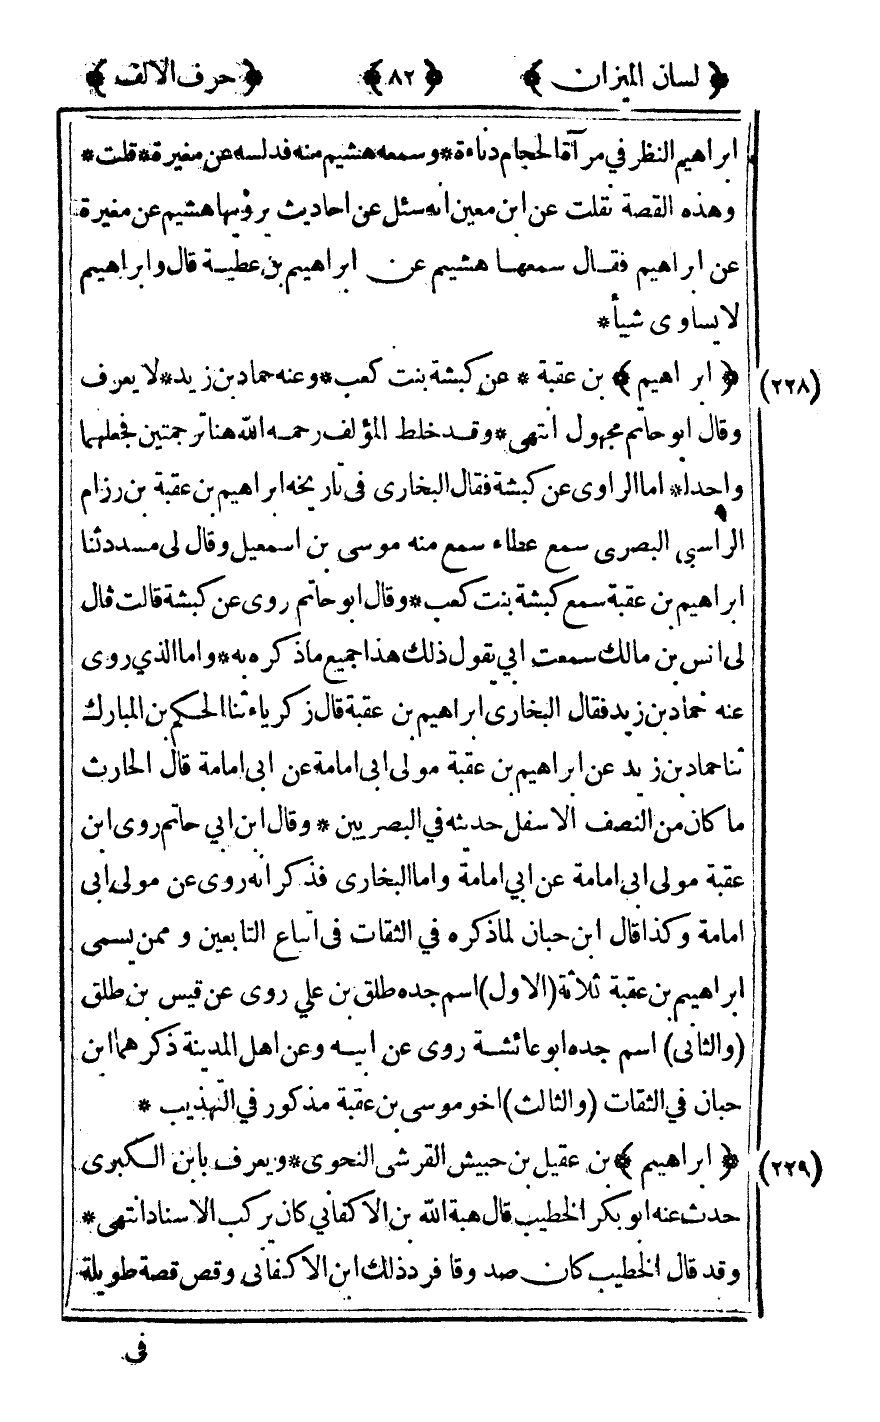 ﴿ لسان الميزان ﴾ ﴿ ٨٢ ﴾ ﴿ حرف الالف ﴾
ابراهيم النظر في مرآة الحجام دناءة * وسمعه هشيم منه فدلسه عن مغيرة * قلت *
وهذه القصة نقلت عن ابن معين انه سئل عن احاديث يرويها هشيم عن مغيرة
عن ابراهيم فقال سمعها هشيم عن ابراهيم بن عطية قال وابراهيم
لا يساوى شيأ *
(٢٢٨) ﴿ ابراهيم ﴾ بن عقبة * عن كبشة بنت كعب * وعنه حماد بن زيد * لا يعرف
وقال ابو حاتم مجهول انتهى * وقد خلط المؤلف رحمه الله هنا ترجمتين فجعلهما
واحدا * اما الراوى عن كبشة فقال البخارى فى تاريخه ابراهيم بن عقبة بن رزام
الراسبي البصرى سمع عطاء سمع منه موسى بن اسمعيل وقال لى مسدد ثنا
ابراهيم بن عقبة سمع كبشة بنت كعب * وقال ابو حاتم روى عن كبشة قالت قال
لى انس بن مالك سمعت ابي يقول ذلك هذا جميع ما ذكره به * واما الذي روى
عنه حماد بن زيد فقال البخارى ابراهيم بن عقبة قال زكرياء ثنا الحكم بن المبارك
ثنا حماد بن زيد عن ابراهيم بن عقبة مولى ابى امامة عن ابى امامة قال الحارث
ما كان من النصف الاسفل حديثه في البصريين * وقال ابن ابي حاتم روى ابن
عقبة مولى ابى امامة عن ابي امامة واما البخارى فذكر انه روى عن مولى ابى
امامة وكذا قال ابن حبان لما ذكره في الثقات فى اتباع التابعين وممن يسمى
ابراهيم بن عقبة ثلاثة (الاول) اسم جده طلق بن علي روى عن قيس بن طلق
(والثانى) اسم جده ابو عائشة روى عن ابيه وعن اهل المدينة ذكرهما ابن
حبان في الثقات (والثالث) اخو موسى بن عقبة مذكور في التهذيب *
(٢٢٩) ﴿ ابراهيم ﴾ بن عقيل بن حبيش القرشى النحوى * ويعرف بابن الكبرى
حدث عنه ابو بكر الخطيب قال هبة الله بن الاكفاني كان يركب الاسناد انتهى *
وقد قال الخطيب كان صدوقا فرد ذلك ابن الاكفانى وقص قصة طويلة
فى